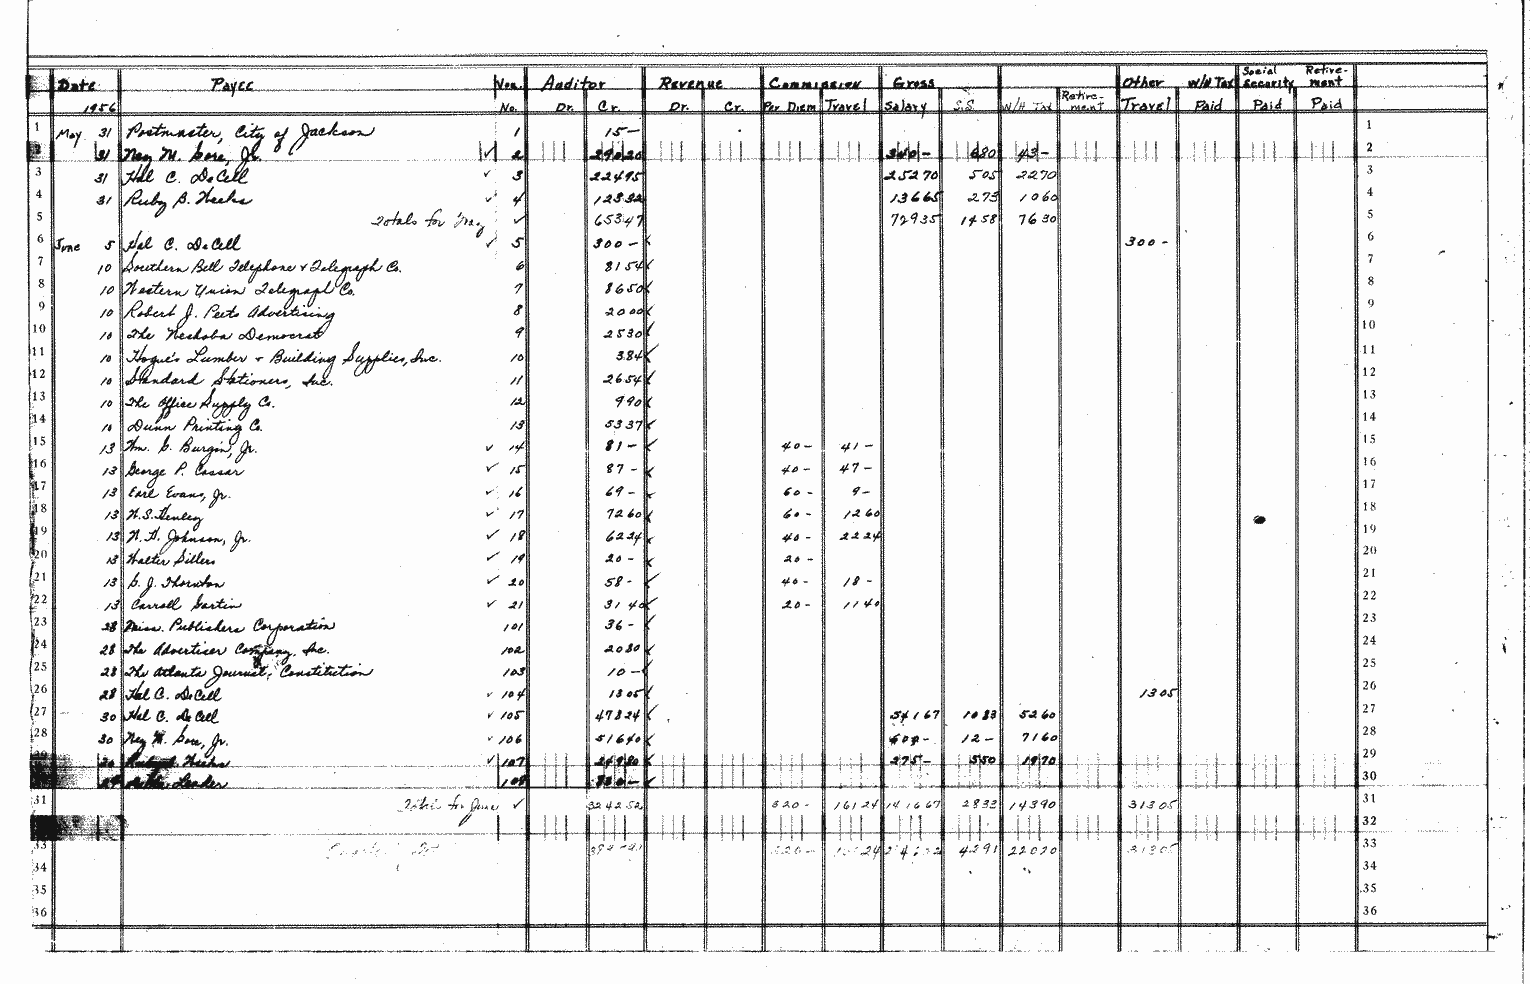 Date Payee Vou. Auditor Revenue Commission Gross Other W/H Tax Social Security Retire-ment
1956 No. Dr. Cr. Dr. Cr. Per Diem Travel Salary S.S. W/H Tax Retire-ment Travel Paid Paid Paid
1 May 31 Postmaster, City of Jackson 1 15 — 1
31 Ney M. Gore, Jr. ✓ 2 290 20 340 - 6 80 43 - 2
3 31 Hal C. DeCell ✓ 3 224 95 252 70 5 05 22 70 3
4 31 Ruby B. Weeks ✓ 4 123 32 136 65 2 73 10 60 4
5 Totals for May ✓ 653 47 729 35 14 58 76 30 5
6 June 5 Hal C. DeCell ✓ 5 300 - ✓ 300 - 6
7 10 Southern Bell Telephone & Telegraph Co. 6 81 54 ✓ 7
8 10 Western Union Telegraph Co. 7 86 50 ✓ 8
9 10 Robert J. Peets Advertising 8 20 00 ✓ 9
10 10 The Neshoba Democrat 9 25 30 ✓ 10
11 10 Hogue's Lumber & Building Supplies, Inc. 10 3 84 ✓ 11
12 10 Standard Stationers, Inc. 11 26 54 ✓ 12
13 10 The Office Supply Co. 12 9 90 ✓ 13
14 10 Dunn Printing Co. 13 53 37 ✓ 14
15 13 Wm. G. Burgin, Jr. ✓ 14 81 - ✓ 40 - 41 - 15
16 13 George P. Cossar ✓ 15 87 - ✓ 40 - 47 - 16
17 13 Earl Evans, Jr. ✓ 16 69 - ✓ 60 - 9 - 17
18 13 W.S. Henley ✓ 17 72 60 ✓ 60 - 12 60 18
19 13 W. H. Johnson, Jr. ✓ 18 62 24 ✓ 40 - 22 24 19
20 13 Walter Sillers ✓ 19 20 - ✓ 20 - 20
21 13 G. J. Thornton ✓ 20 58 - ✓ 40 - 18 - 21
22 13 Carroll Gartin ✓ 21 31 40 ✓ 20 - 11 40 22
23 28 Miss. Publishers Corporation 101 36 - ✓ 23
24 28 The Advertiser Company, Inc. 102 20 80 ✓ 24
25 28 The Atlanta Journal, Constitution 103 10 - ✓ 25
26 28 Hal C. DeCell ✓ 104 13 05 ✓ 13 05 26
27 30 Hal C. DeCell ✓ 105 478 24 ✓ 541 67 10 83 52 60 27
28 30 Ney M. Gore, Jr. ✓ 106 516 40 ✓ 600 - 12 - 71 60 28
Weeks ✓ 107 249 80 ✓ 275 - 5 50 19 70 29
Leader 108 ✓ 30
31 Totals for June ✓ 3242 52 320 - 161 24 1416 67 28 33 143 90 313 05 31
32
33 42 91 220 20 313 05 33
34 34
35 35
36 36